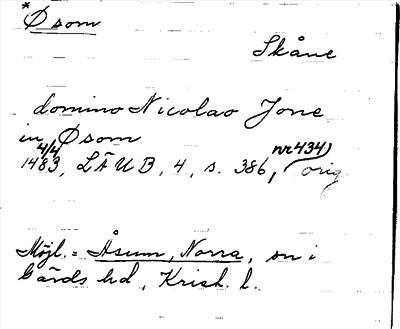 * Øsom
Skåne
domino Nicolao Jone
in Øsom
4/4 1483, LÄUB, 4, s. 386, nr 434) orig
Möjl. = Åsum, Norra, sn i
Gärds hd, Krist. l.